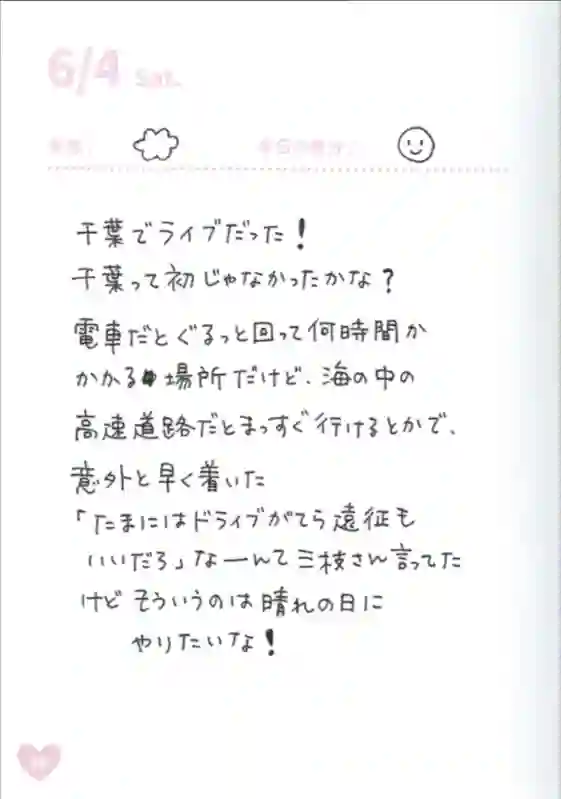 6/4 Sat.
千葉でライブだった！
千葉って初じゃなかったかな？
電車だとぐるっと回って何時間か
かかる場所だけど、海の中の
高速道路だとまっすぐ行けるとかで、
意外と早く着いた
「たまにはドライブがてら遠征も
いいだろ」なーんて三枝さん言ってた
けど そういうのは晴れの日に
やりたいな！